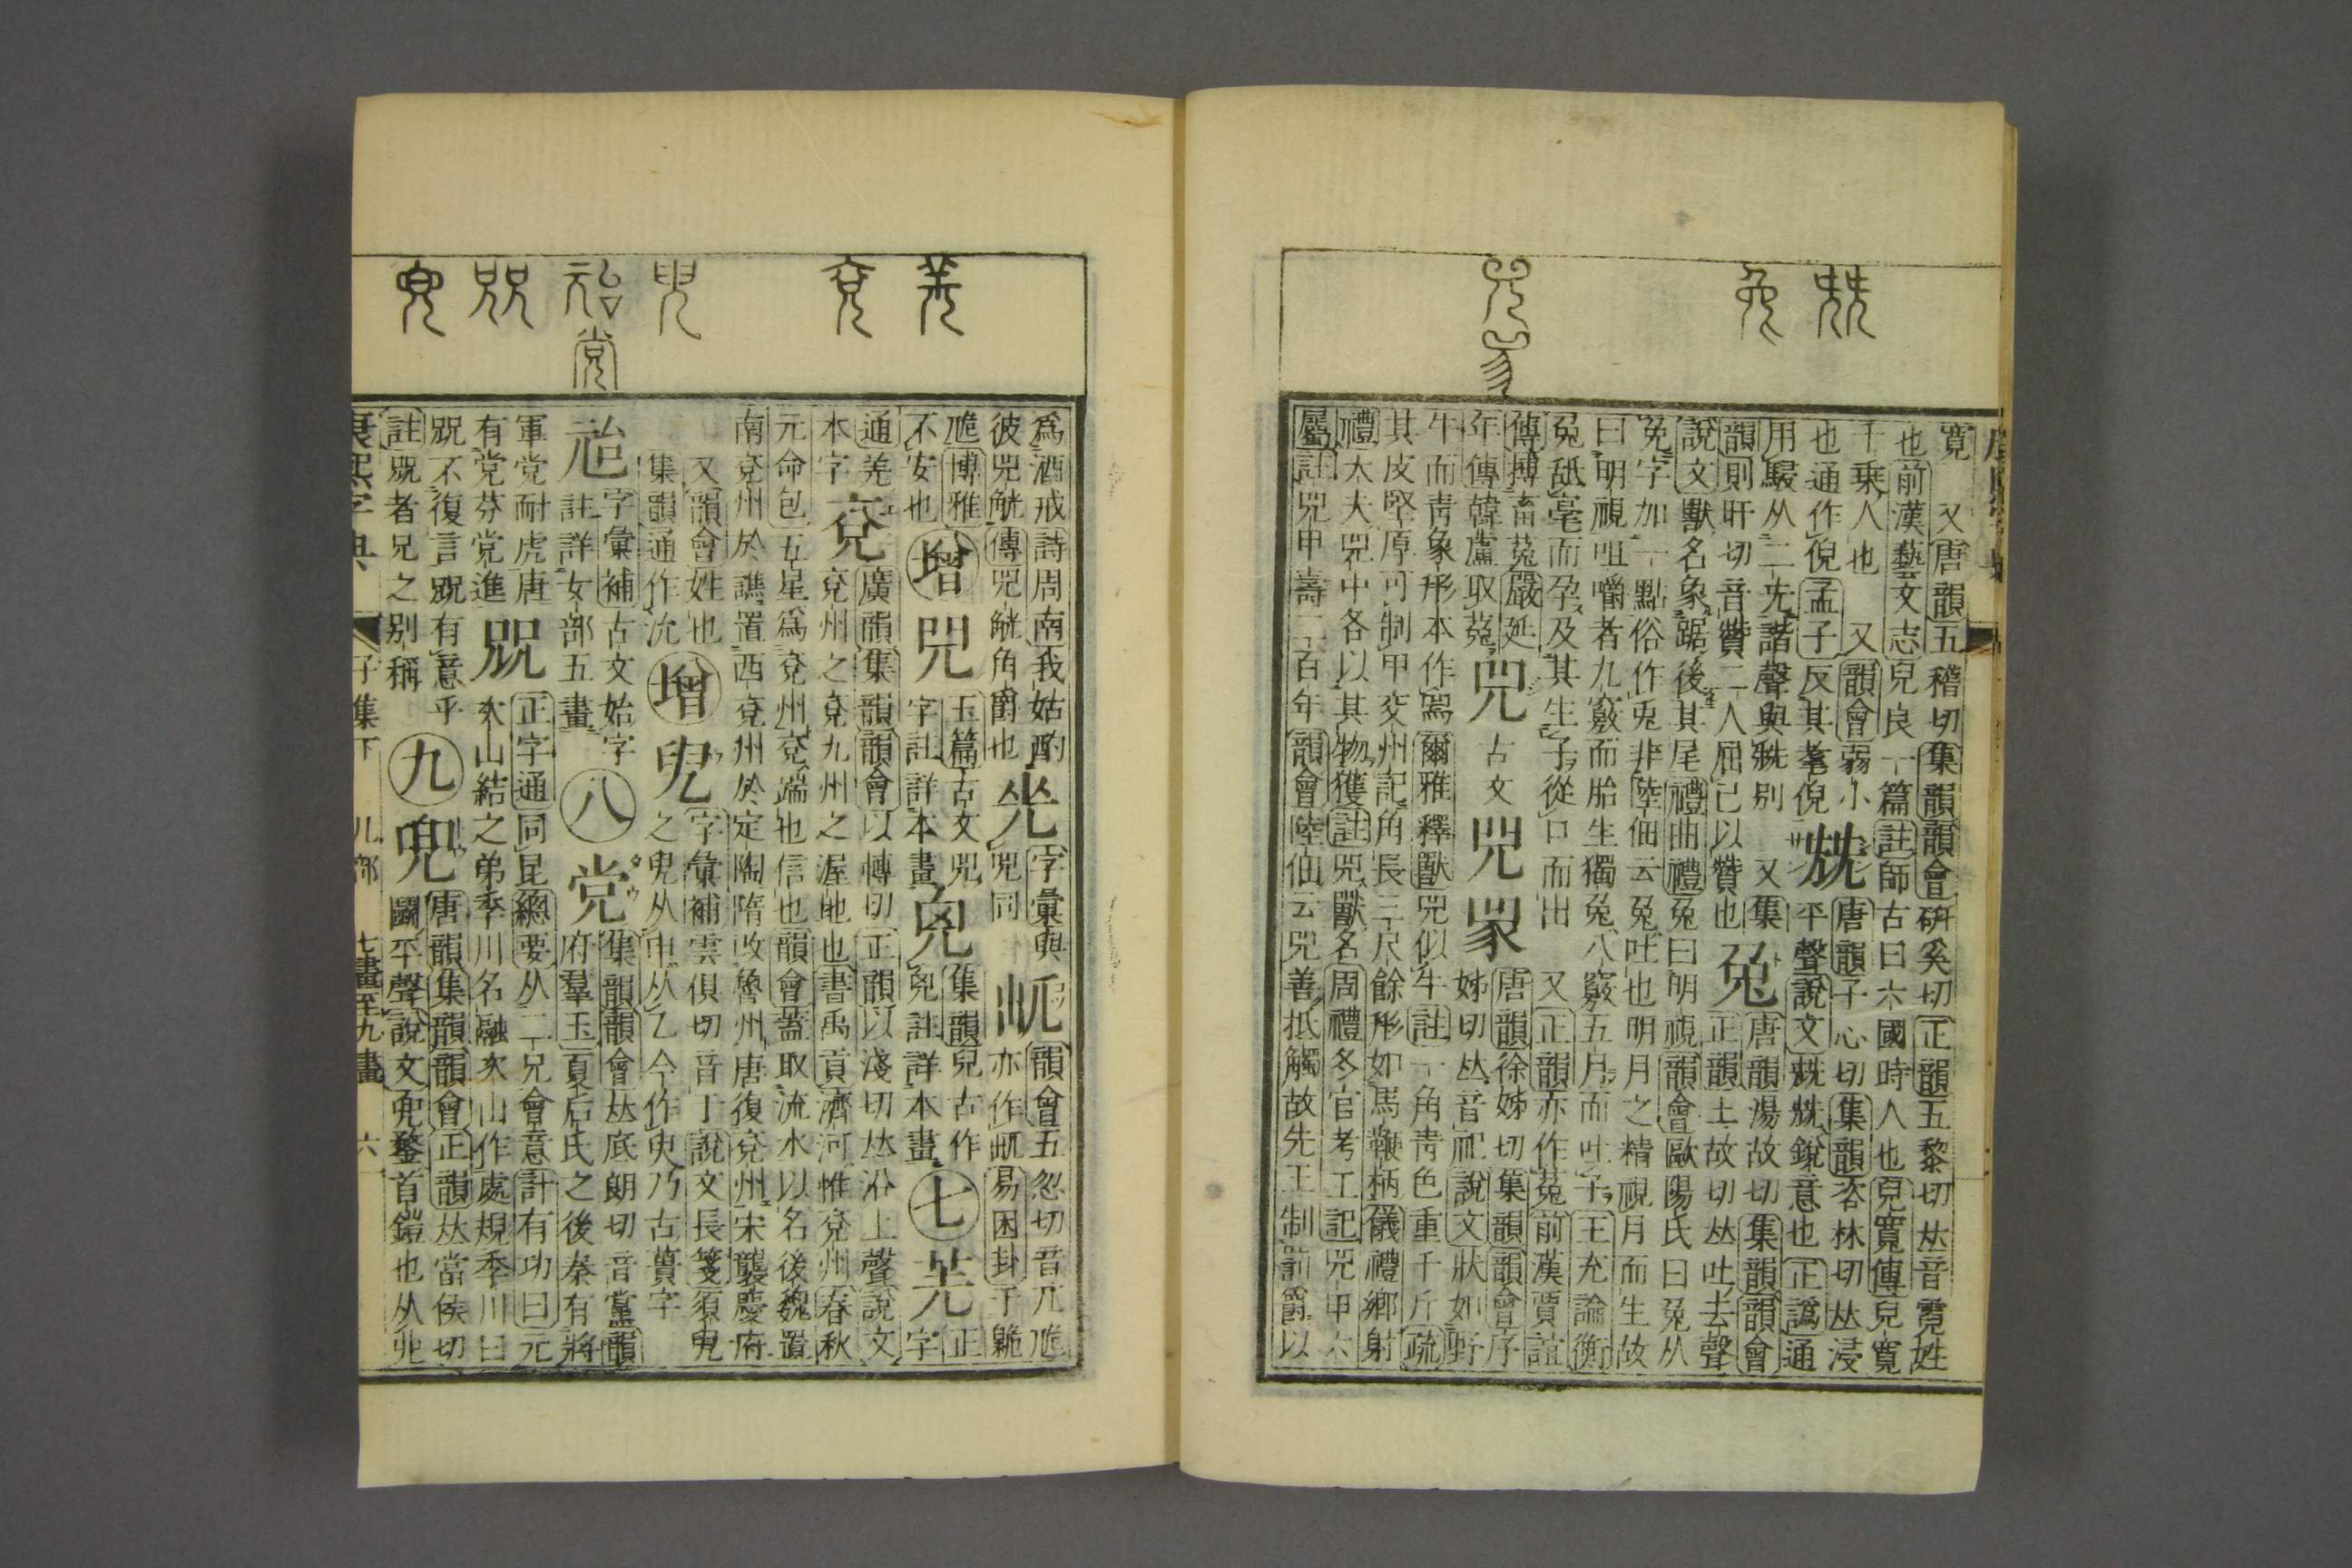 寬 又唐韻五稽切集韻韻會硏奚切正韻五黎切𠀤音霓姓
也前漢藝文志兒良一篇註師古曰六國時人也兒寬傳兒寬
千乗人也 又韻會弱小 兟 唐韻子心切集韻咨林切𠀤浸
也通作倪孟子反其耄倪 平聲說文兟兟銳意也正譌通
用駸从二先諧聲與兟别 又集 兔 唐韻湯故切集韻韻會
韻則旰切音贊二人屈己以贊也 正韻土故切𠀤吐去聲
說文獸名象踞後其尾禮曲禮兔曰明視韻會歐陽氏曰兔从
免字加一點俗作兎非陸佃云兔吐也明月之精視月而生故
曰明視咀嚼者九竅而胎生獨兔八竅五月而吐子王充論衡
兔舐毫而孕及其生子從口而出 又正韻亦作菟前漢賈誼
傳搏畜菟嚴延 兕 古文 唐韻徐姊切集韻韻會序
年傳韓盧取菟 姊切𠀤音祀說文狀如野
牛而靑象形本作 爾雅釋獸兕似牛註一角靑色重千斤疏
其皮堅厚可制甲交州記角長三尺餘形如馬鞭柄儀禮鄕射
禮大夫兕中各以其物獲註兕獸名周禮冬官考工記兕甲六
屬註兕甲壽二百年韻會陸佃云兕善抵觸故先王制罰爵以
爲酒戒詩周南我姑酌 字彙與 韻會五忽切音兀卼
彼兕觥傳兕觥角爵也 兕同 亦作 易困卦于臲
卼博雅 增 玉篇古文兕 集韻兒古作 七 羌 正
不安也 字註詳本畫 兒註詳本畫 字
通羌 兗 廣韻集韻韻會以轉切正韻以淺切𠀤沿上聲說文
本字 兗州之兗九州之渥地也書禹貢濟河惟兗州春秋
元命包五星爲兗州兗端也信也韻會蓋取流水以名後魏置
南兗州於譙置西兗州於定陶隋改魯州唐復兗州宋襲慶府
又韻會姓也 增 字彙補雲俱切音丁說文長箋須
集韻通作沇 之 从申从乙今作臾乃古蕢字
兘 字彙補古文始字 八 党 集韻韻會𠀤底朗切音黨韻
註詳女部五畫 府羣玉夏后氏之後秦有將
軍党耐虎唐 𠒑 正字通同昆總要从二兄會意計有功曰元
有党芬党進 次山結之弟季川名融次山作處規季川曰
𠒑不復言𠒑有意乎 九 兜 唐韻集韻韻會正韻𠀤當侯切
註𠒑者兄之别稱 鬭平聲說文兜鍪首鎧也从
康熙字典 子集下 儿部 七畫至九畫 六